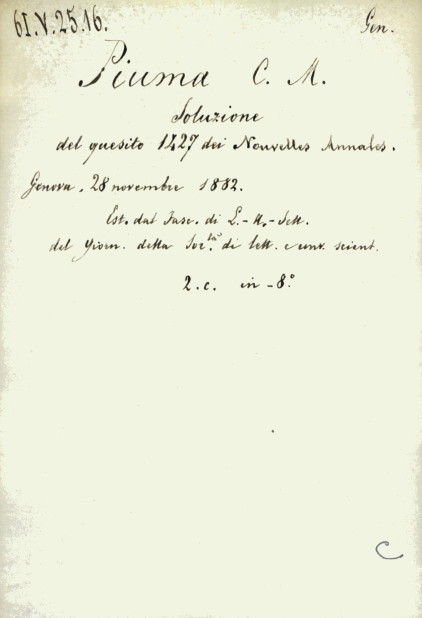 61.V.25.16.
Gen.
Piuma C. M.
Soluzione
del quesito 1427 dei Nouvelles Annales.
Genova, 28 novembre 1882.
Est. dal Fasc. di
del Giorn. della Soc.tà di lett. e conv. scient.
2. c. in-8.°
C